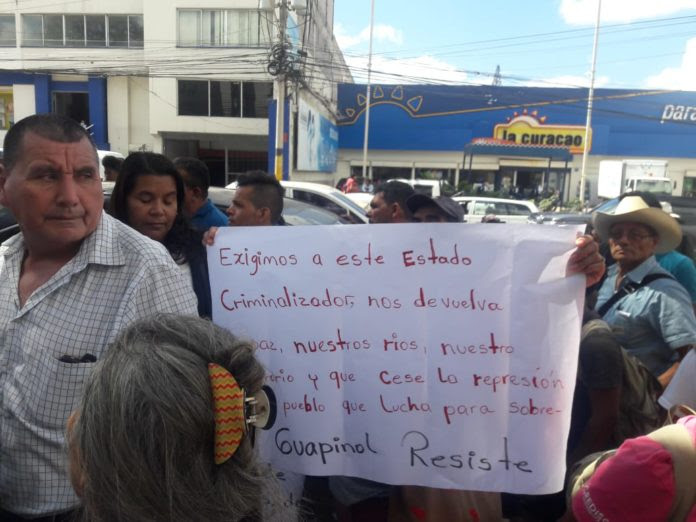 la curacao
para
Exigimos a este Estado
Criminalizador, nos devuelva
paz, nuestros rios, nuestro
y que cese la represión
pueblo que lucha para sobre-
Guapinol Resiste